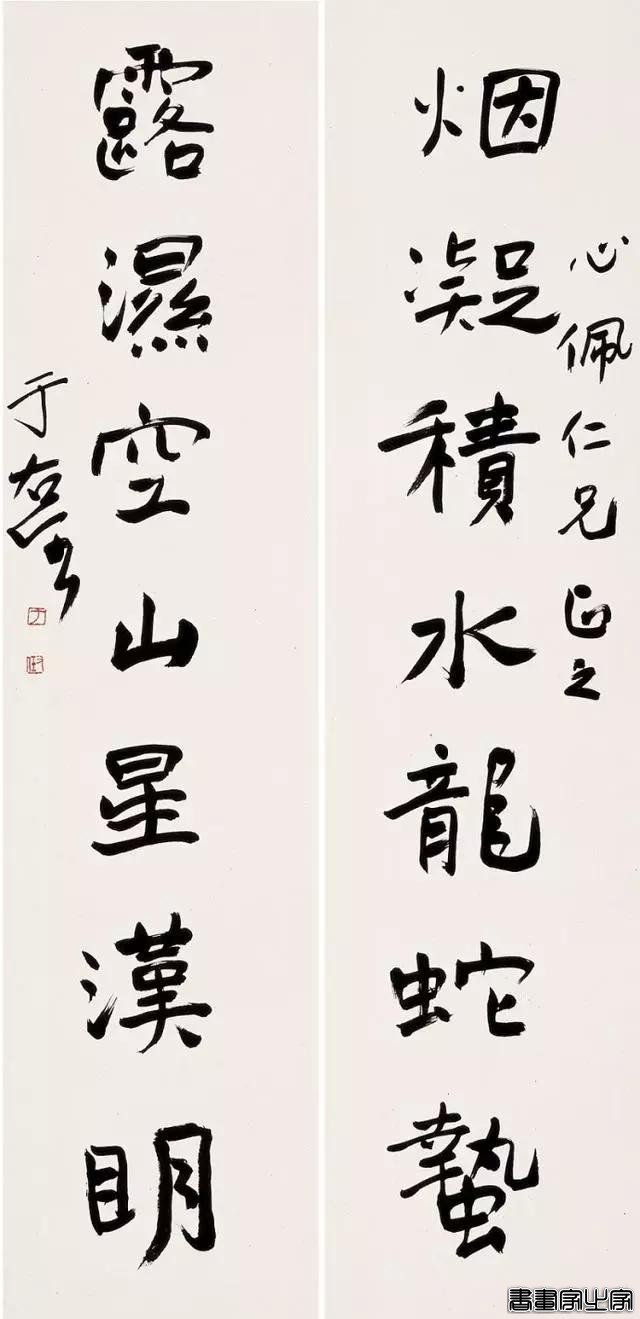 心佩仁兄正之
烟凝積水龍蛇蟄
露濕空山星漢明
于右任
書畫家之家